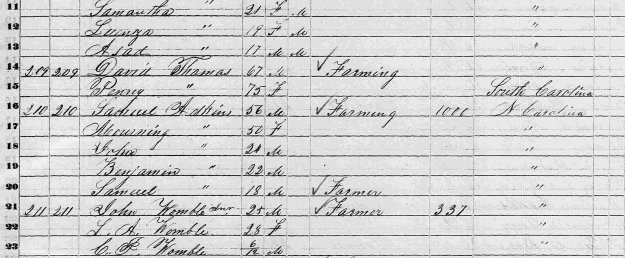 11 Samantha " 21 F M
12 Luinza " 19 F M "
13 Asad " 17 M M "
14 209 209 David Thomas 67 M ✓ Farming "
15 Penny " 75 F South Carolina
16 210 210 Samuel Adkins 56 M ✓ Farming 1000 N Carolina
17 Mourning " 50 F "
18 John " 24 M "
19 Benjamin " 22 M "
20 Samuel " 18 M ✓ Farmer "
21 211 211 John Womble Jur. 25 M ✓ Farmer 337 "
22 L. A. Womble. 28 F "
23 C. F. Womble 6/12 M "